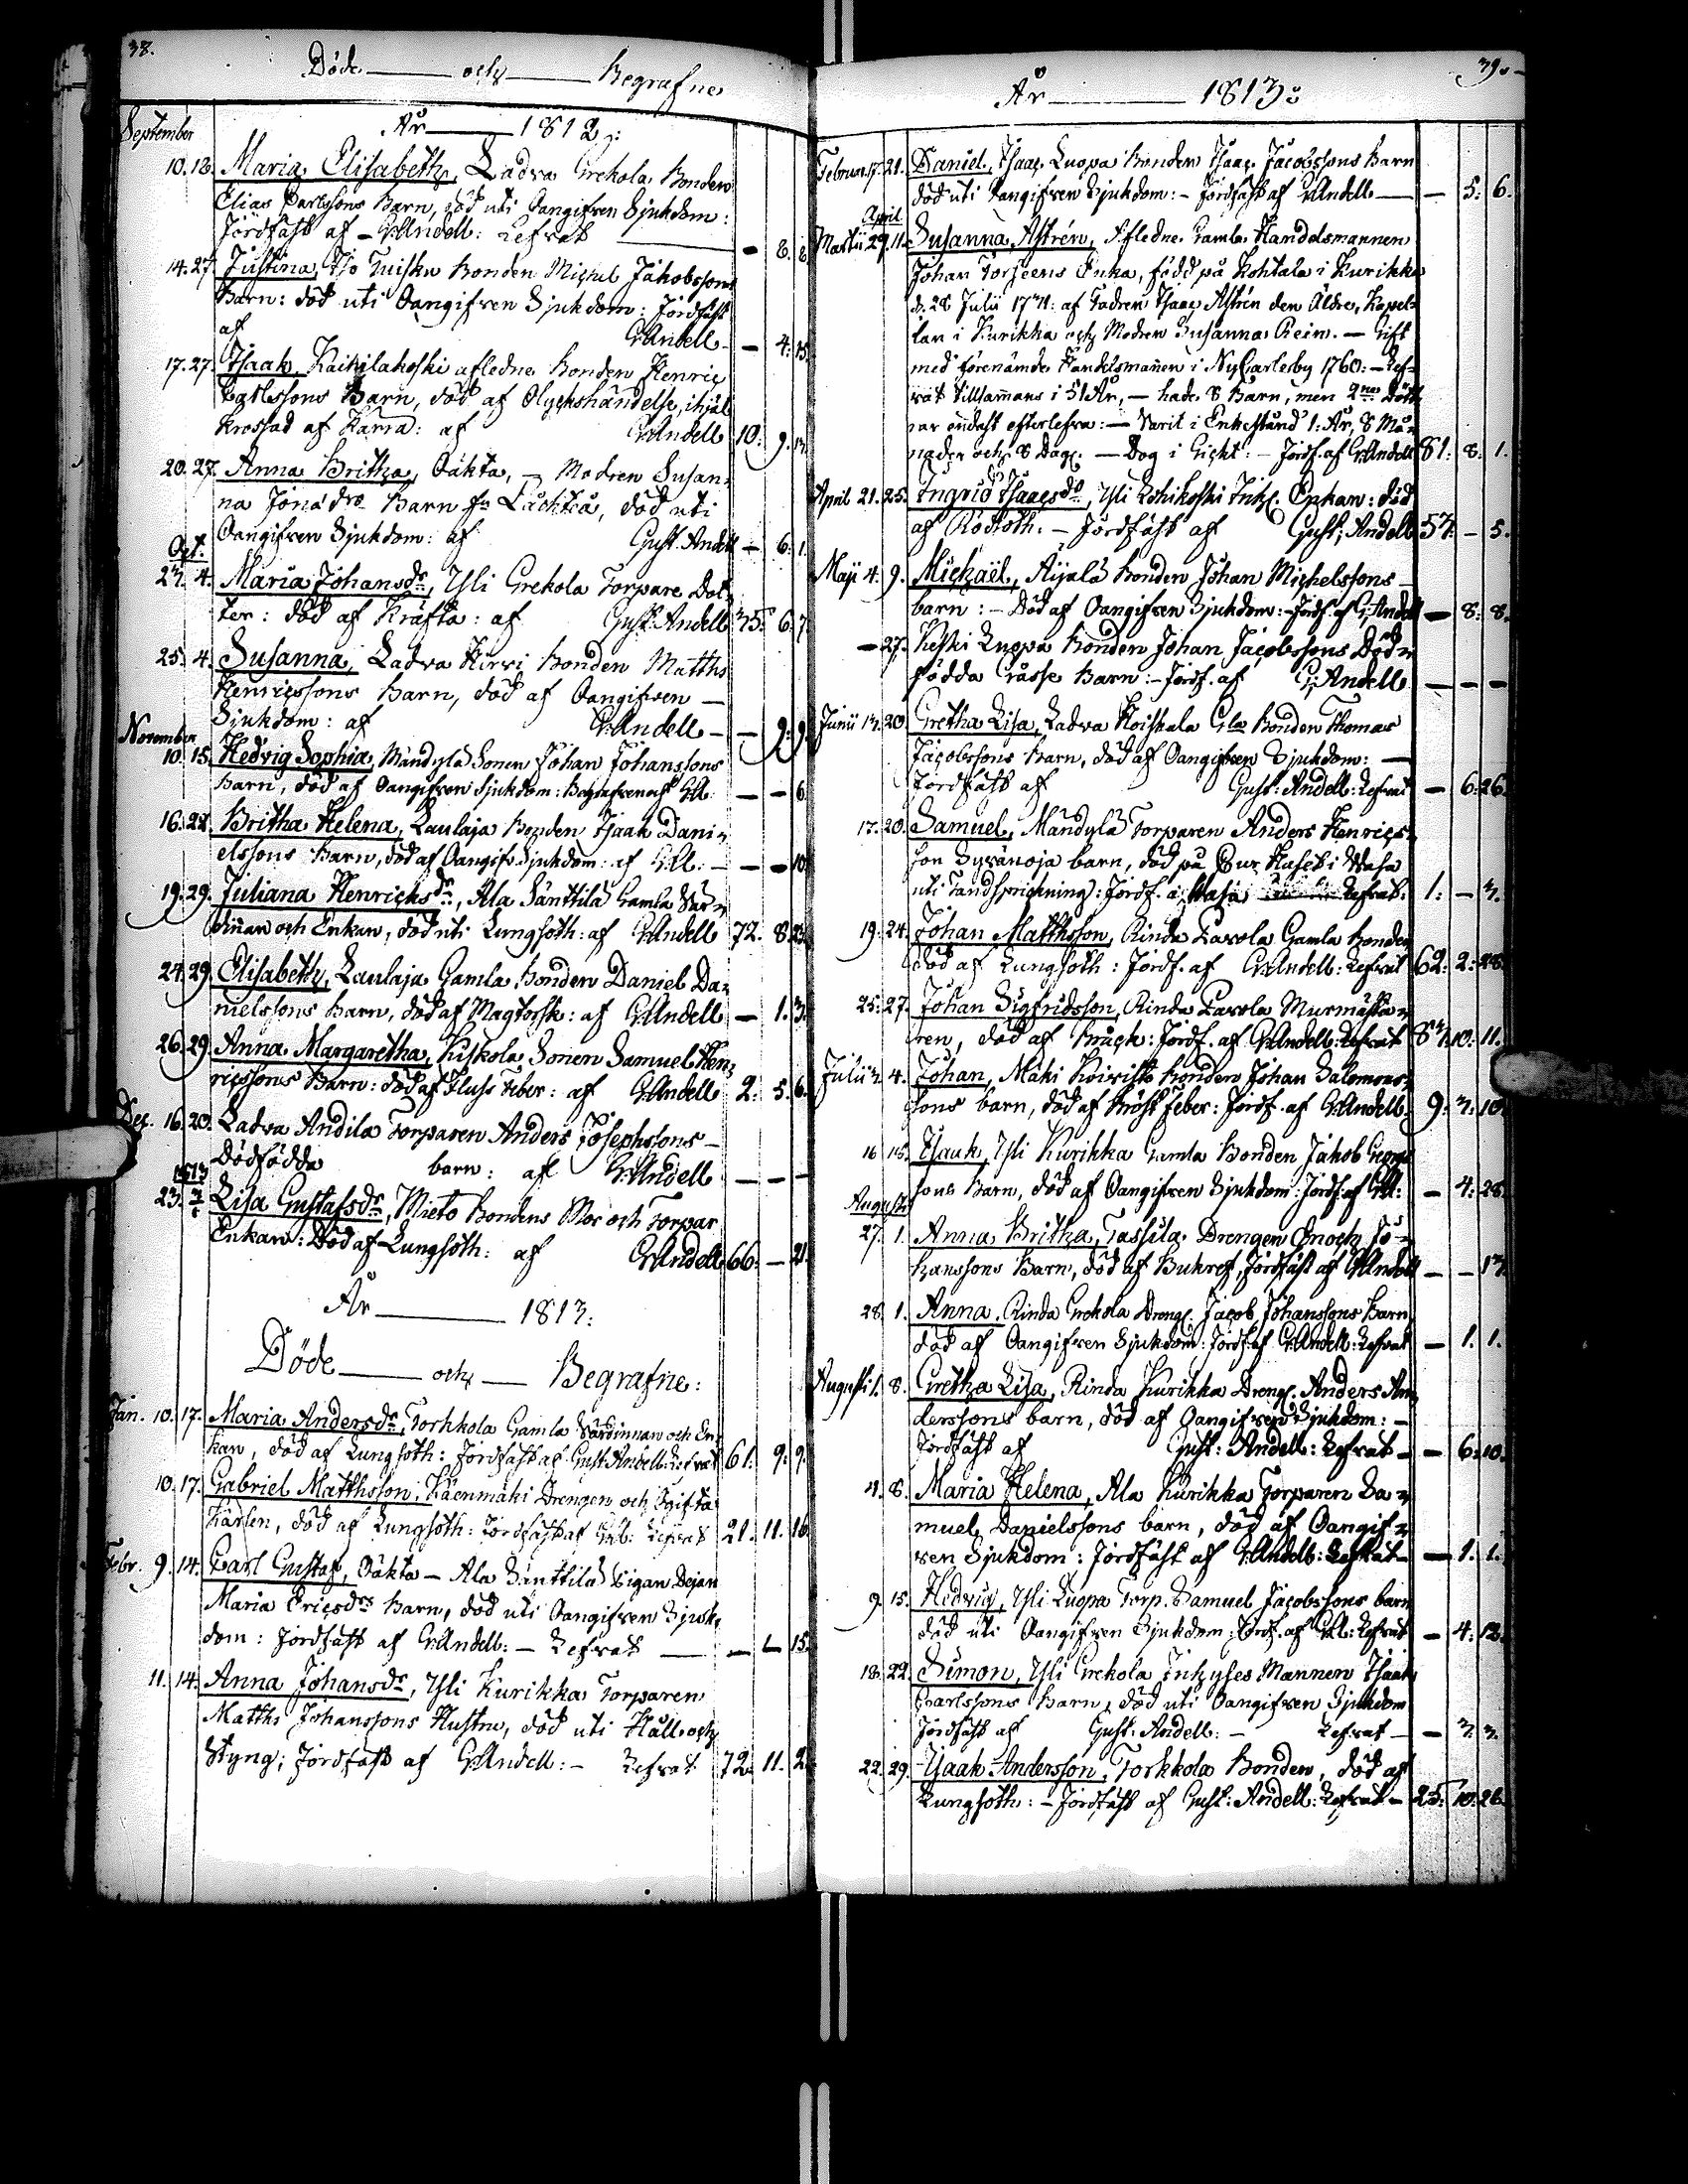 38.
Döde ——— och ——— Begrafne
År ——— 1812:
September
10. 12. Maria Elisabeth, Ladva Grekola Bonden
Elias Carlssons Barn, död uti Oangifven Sjukdom:
Jördfäst af – G: Andell: Lefvat — 8.
14. 27. Justina, Iso Tuisku Bonden Michel Jakobssons
Barn: död uti Oangifven Sjukdom: Jördfäst
af G: Andell — 4: 15
17. 27. Isaak, Kaikilakoski afledne Bonden Henric
Barn, död af Olyckshändelse, ihjäl
krossad af Kärra: af G: Andell 10: 9.
20. 27. Anna Britha, Oäkta, – Modren Susan-
na Jonædrs Barn fr. död uti
Oangifven Sjukdom: af Gust. Andell — 6: 1.
Oct.
27. 4. Maria Johansdr, Yli Grekola Torpare Dot-
ter: död af Kräfta: af Gust: Andell 35: 6: 7
25. 4. Susanna, Ladva Kirvi Bonden Matths
Henricssons Barn, död af Oangifven –
Sjukdom: af G: Andell — 9: 9
November
10. 15. Hedvig Sophia, Mändylä Sonen Johan Johanssons
Barn, död af Oangifven Sjukdom: Begrafven af G:A: — — 6
16. 22. Britha Helena, Laulaja Bonden Isaak Dani-
elssons Barn, död af Oangifv. Sjukdom: af G:A: — — 10
19. 29. Juliana Henricksdr, Ala Säntti­lä Gamla Vär-
dinnan och Enkan, död uti Lungsoth: af G: Andell 72. 8. 23.
24. 29. Elisabeth, Laulaja Gamla Bonden Daniel Da-
nielssons Barn, död af Magtorsk: af G: Andell — 1. 3.
26. 29. Anna Margaretha, Kiskola Sonen Samuel Hen-
ricssons Barn: död af Fluss Feber: af G: Andell 2: 5. 6.
Dec. 16. 20. Ladva Andila Torparen Anders Josephssons –
Dödfödda barn: af G: Andell — — —
1813
23. Lisa Gustafsdr, Mieto Bondens Mor och Torpar
Enkan: Död af Lungsoth: af G: Andell 66: — 21.
År ——— 1813:
Döde ——— och — Begrafne:
Jan. 10. 17. Maria Andersdr, Torkkola Gamla Värdinnan och En-
kan, död af Lungsoth: Jordfäst af Gust. Andell: Lefvat 61: 9: 9.
10. 17. Gabriel Matthsson, Käenmäki Drengen och Ogifta
Karlen, död af Lungsoth: Jördfäst af G:A: Lefvat 21. 11. 16.
Febr. 9. 14. Carl Gustaf, Oäkta – Ala Säntti­lä Pigan Dejan
Maria Ericsdrs Barn, död uti Oangifven Sjuk-
dom: Jördfäst af G: Andell: – Lefvat — — 15.
11. 14. Anna Johansdr, Yli Kurikka Torparen
Matths Johanssons Hustru, död uti Håll och
Styng; Jördfäst af G: Andell: – Lefvat 72. 11. 2.
39.
År ——— 1813:
Februar. 17. 21. Daniel, Isaac Luopa Bonden Isaac Jacobssons Barn
död uti Oangifven Sjukdom: – Jördfäst af G: Andell — 5: 6.
April
Martii 29. 11. Susanna Astrén, Afledne Gamla Handelsmannen
Johan Forséens Enka, född på Kohtala i Kurikka
d. 28 Julii 1731: af Fadren Isaac Astrén den Äldre, Kapel-
lan i Kurikka och Modren Susanna Rein. – Gift
med förenämde Handelsmañen i NyCarleby 1760: – Lef-
vat tillsam̃ans i 51 År, – hade 8 Barn, men 2ne Dött-
rar endast efterlefva: – Varit i Enkestånd 1: År, 8 Må-
nader och 8 Dag. – Dog i Gickt: – Jordf. af G: Andell 81: 8: 1.
April 21. 25. Ingrid Isaacsdr, Yli Inh. Enkan: död
af Rödsoth. – Jördfäst af Gust: Andell 57: — 5.
Maji 4. 9. Michaël, Äijälä Bonden Johan Michelssons –
barn: – Död af Oangifven Sjukdom: – Jordf. af G: Andell — 8: 8.
— 27. Keski Luopa Bonden Johan Jacobssons Död-
födda Gosse Barn: – Jordf. af G: Andell — — —
Junii 13. 20. Gretha Lisa, Ladva Koiskala Gla Bonden Thomas
Jacobssons Barn, död af Oangifven Sjukdom: –
Jordfäst af Gust: Andell: Lefvat — 6: 26.
17. 20. Samuel, Mändylä Torparen Anders Henrics-
son Syränoja barn, död på Cur Huset i Wasa
uti Tandsprickning: Jordf. i Wasa Lefvat: 1: — 3.
19. 24. Johan Matthsson, Rinda Pavola Gamla Bonden
död af Lungsoth: Jordf. af G: Andell: Lefvat 62: 2: 28.
25. 27. Johan Sigfridsson, Rinda Pavola Murmästa-
ren, död af Bråck: Jordf. af G: Andell: Lefvat 83: 10: 11.
Julii 2. 4. Johan, Mäki Koivisto Bonden Johan Salomons-
sons barn, död af Bröst Feber: Jordf. af G: Andell: 9: 3: 10.
16 18. Isaak, Yli Kurikka Gamla Bonden Jakob Georgs
sons Barn, död af Oangifven Sjukdom: Jordf. af G:A: — 4: 28.
Augusti
27. 1. Anna Britha, Tassila Drengen Enoch Jo-
hanssons Barn, död af Bukref, Jördfäst af G: Andell — — 13.
28. 1. Anna, Rinda Grekola Dreng. Jacob Johanssons Barn
död af Oangifven Sjukdom: Jordf. af G: Andell: Lefvat — 1. 1.
Augusti 1. 8. Gretha Lisa, Rinda Kurikka Dreng. Anders An-
derssons barn, död af Oangifven Sjukdom: –
Jordfäst af Gust: Andell: Lefvat — 6: 10.
4. 8. Maria Helena, Ala Kurikka Torparen Sa-
muel Danielssons barn, död af Oangif-
ven Sjukdom: Jordfäst af G: Andell: Lefvat — 1. 1.
9. 15. Hedvig, Yli Luopa Torp. Samuel Jacobssons barn
död uti Oangifven Sjukdom: Jordf. af G:A: Lefvat — 4: 12.
18. 22. Simon, Yli Grekola Inhyses Mannen Isaak
Carlssons Barn, död uti Oangifven Sjukdom
Jordfäst af Gust: Andell: – Lefvat — 3: 3.
22. 29. Isaak Andersson, Torkkola Bonden, död af
Lungsoth: – Jordfäst af Gust: Andell: Lefvat 25: 10: 26.